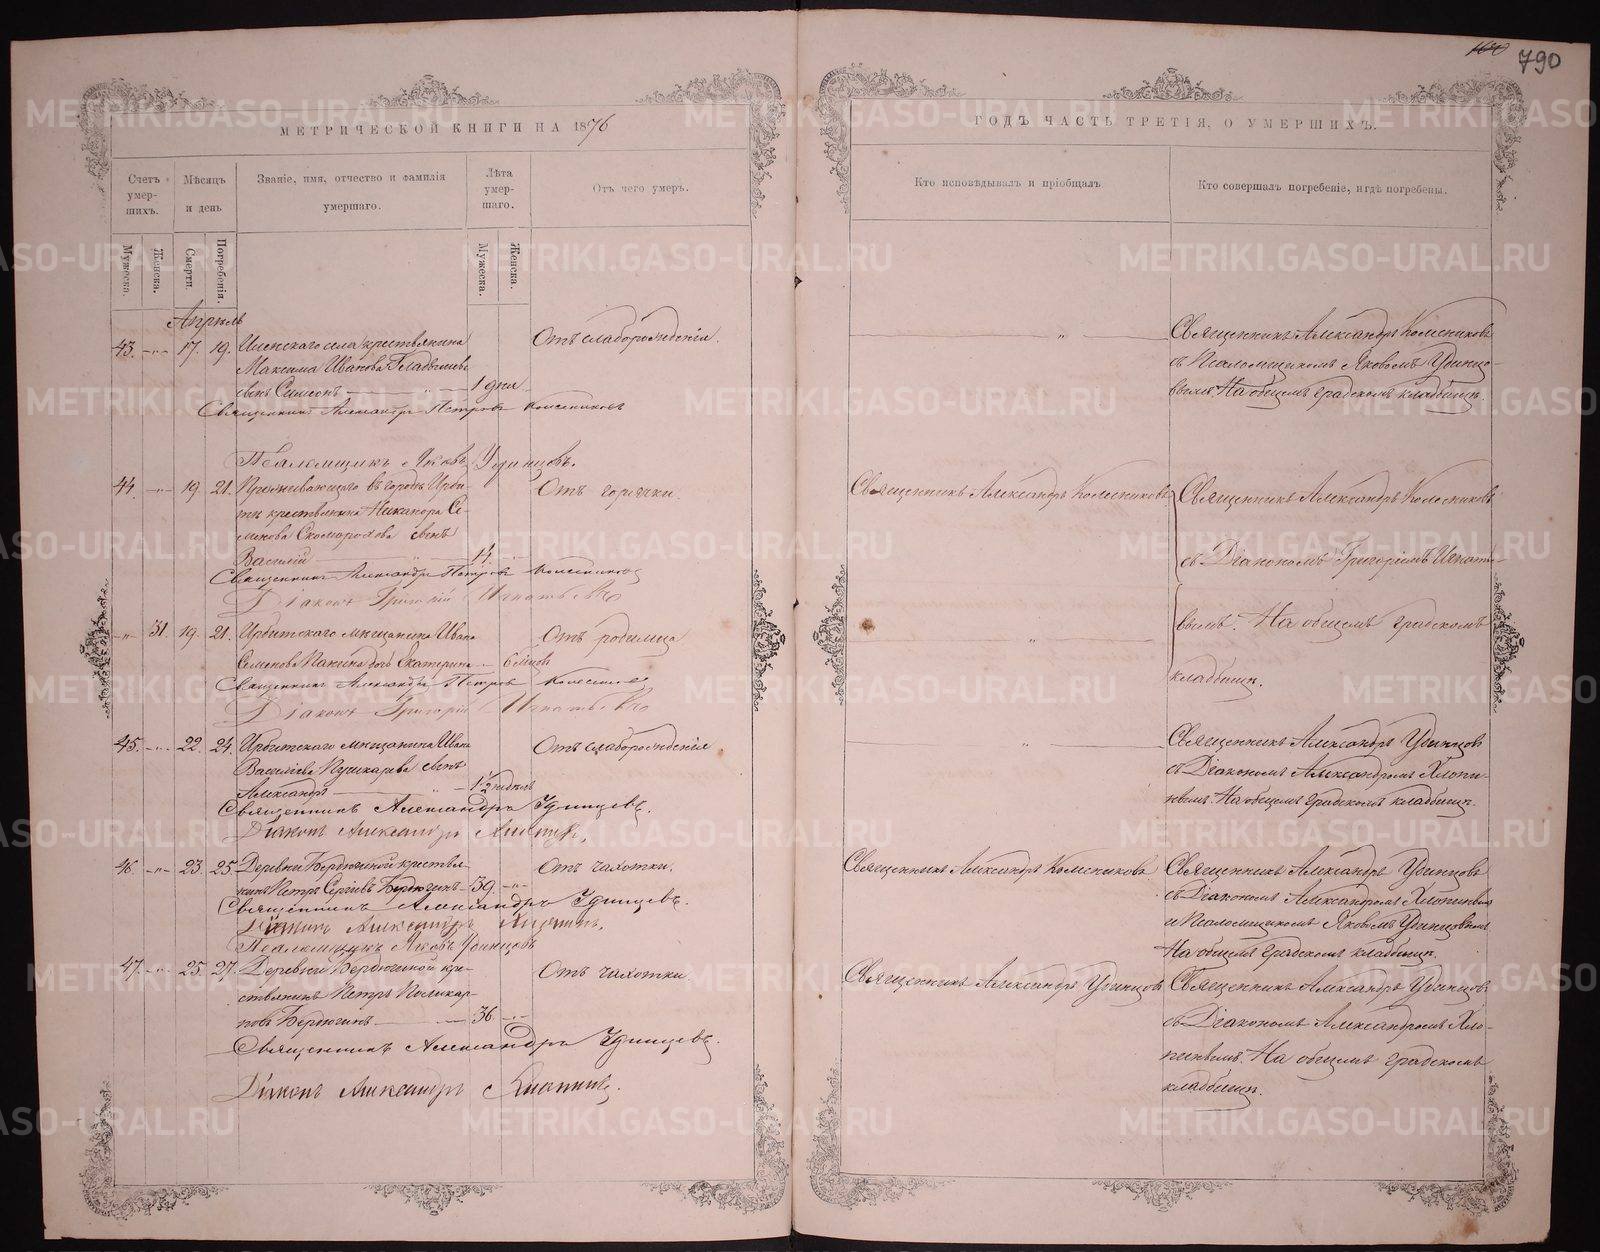 160 790
МЕТРИЧЕСКОЙ КНИГИ НА 1876
ГОДЪ ЧАСТЬ ТРЕТІЯ, О УМЕРШИХЪ.
Счетъ умер-шихъ.
Мѣсяцъ и день
Званіе, имя, отчество и фамилія умершаго.
Лѣта умер-шаго.
Отъ чего умеръ.
Кто исповѣдывалъ и пріобщалъ
Кто совершалъ погребеніе, и гдѣ погребены.
Мужеска.
Женска.
Смерти.
Погребенія.
Мужеска.
Женска.
Апрѣль
43. -"- 17. 19. села крестьянина
Максима Иванова
сынъ Симеонъ — " — 1 дня
Отъ слаборожденія.
"
Священникъ Александръ Колесниковъ
съ Псаломщикомъ Яковомъ Удинцо-
вымъ. На общемъ градскомъ кладбищѣ.
Священникъ Александръ Петровъ Колесниковъ
Псаломщикъ Яковъ Удинцовъ.
44. -"- 19. 21. Проживающаго въ городѣ Ирби-
ти крестьянина Никанора Се-
менова Скоморохова сынъ
Василій — " — 14. -"-
Отъ горячки.
Священникъ Александръ Колесниковъ
Священникъ Александръ Колесниковъ
съ Діакономъ Григоріемъ Игнать-
Священникъ Александръ Петровъ Колесниковъ
Діаконъ Григорій Игнатьевъ
-"- 31. 19. 21. Ирбитскаго мѣщанина Ивана
Семенова Панина дочь Екатерина — 6 мѣсяцъ
Отъ родимца
"
евымъ. На общемъ градскомъ
кладбищѣ.
Священникъ Александръ Петровъ Колесниковъ
Діаконъ Григорій Игнатьевъ
45. -"- 22. 24. Ирбитскаго мѣщанина Ивана
Васильева Пушкарева сынъ
Александръ — " — 1½ недѣль
Отъ слаборожденія
"
Священникъ Александръ Удинцовъ
съ Діакономъ Александромъ Хлопи-
нымъ. На общемъ градскомъ кладбищѣ.
Священникъ Александръ Удинцевъ.
Діаконъ Александръ Хлопинъ.
46. -"- 23. 25. Деревни Бердюгиной крестья-
нинъ Петръ Сергіевъ Бердюгинъ — 39. -"-
Отъ чахотки.
Священникъ Александръ Колесниковъ
Священникъ Александръ Удинцовъ
съ Діакономъ Александромъ Хлопинымъ
и Псаломщикомъ Яковомъ Удинцовымъ
На общемъ градскомъ кладбищѣ.
Священникъ Александръ Удинцевъ.
Діаконъ Александръ Хлопинъ.
Псаломщикъ Яковъ Удинцовъ
47. -"- 25. 27. Деревни Бердюгиной кре-
стьянинъ Петръ Поликар-
повъ Бердюгинъ — 36. -"-
Отъ чахотки.
Священникъ Александръ Удинцовъ
Священникъ Александръ Удинцовъ
съ Діакономъ Александромъ Хло-
пинымъ. На общемъ градскомъ
кладбищѣ.
Священникъ Александръ Удинцевъ.
Діаконъ Александръ Хлопинъ.
METRIKI.GASO-URAL.RU